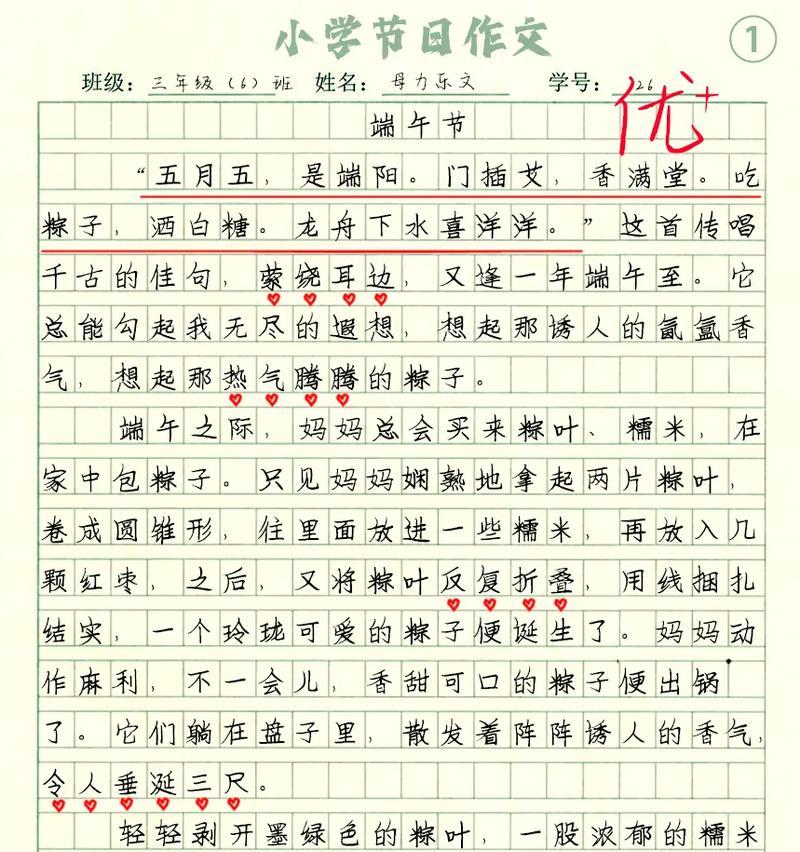 小学节日作文
1
班级：三年级（6）班 姓名：母力乐文 学号：26
优+
端午节
“五月五，是端阳。门插艾，香满堂。吃
粽子，洒白糖。龙舟下水喜洋洋。”这首传唱
千古的佳句，萦绕耳边，又逢一年端午至。它
总能勾起我无尽的遐想，想起那诱人的氤氲香
气，想起那热气腾腾的粽子。
端午之际，妈妈总会买来粽叶、糯米，在
家中包粽子。只见妈妈娴熟地拿起两片粽叶，
卷成圆锥形，往里面放进一些糯米，再放入几
颗红枣，之后，又将粽叶反复折叠，用线捆扎
结实，一个玲珑可爱的粽子便诞生了。妈妈动
作麻利，不一会儿，香甜可口的粽子便出锅
了。它们躺在盘子里，散发着阵阵诱人的香气，
令人垂涎三尺。
轻轻剥开墨绿色的粽叶，一股浓郁的糯米